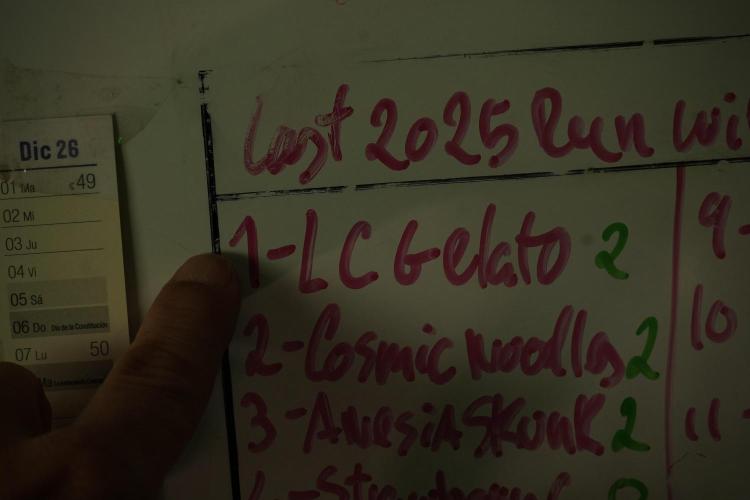 Last 2025 Run wi
Dic 26
01 Ma 49
02 Mi
03 Ju
04 Vi
05 Sá
06 Do Día de la Constitución
07 Lu 50
Ma
1-LC Gelato 2
2-Cosmic Noodles 2
3-AnesiA Skunk 2
4-
9-
10
11